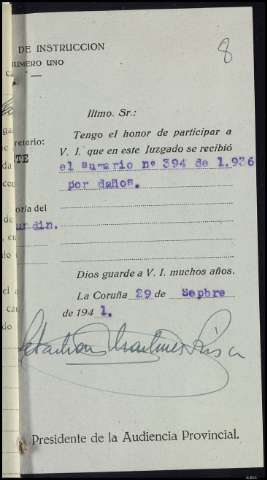 DE INSTRUCCION
NUMERO UNO
8
Illmo. Sr.:
Tengo el honor de participar a
V. I. que en este Juzgado se recibió
el sumario nº 394 de 1.936
por daños.
retorio:
TE
oria del
un din.
Dios guarde a V. I. muchos años.
La Coruña 29 de Sepbre
de 194 1.
Presidente de la Audiencia Provincial.